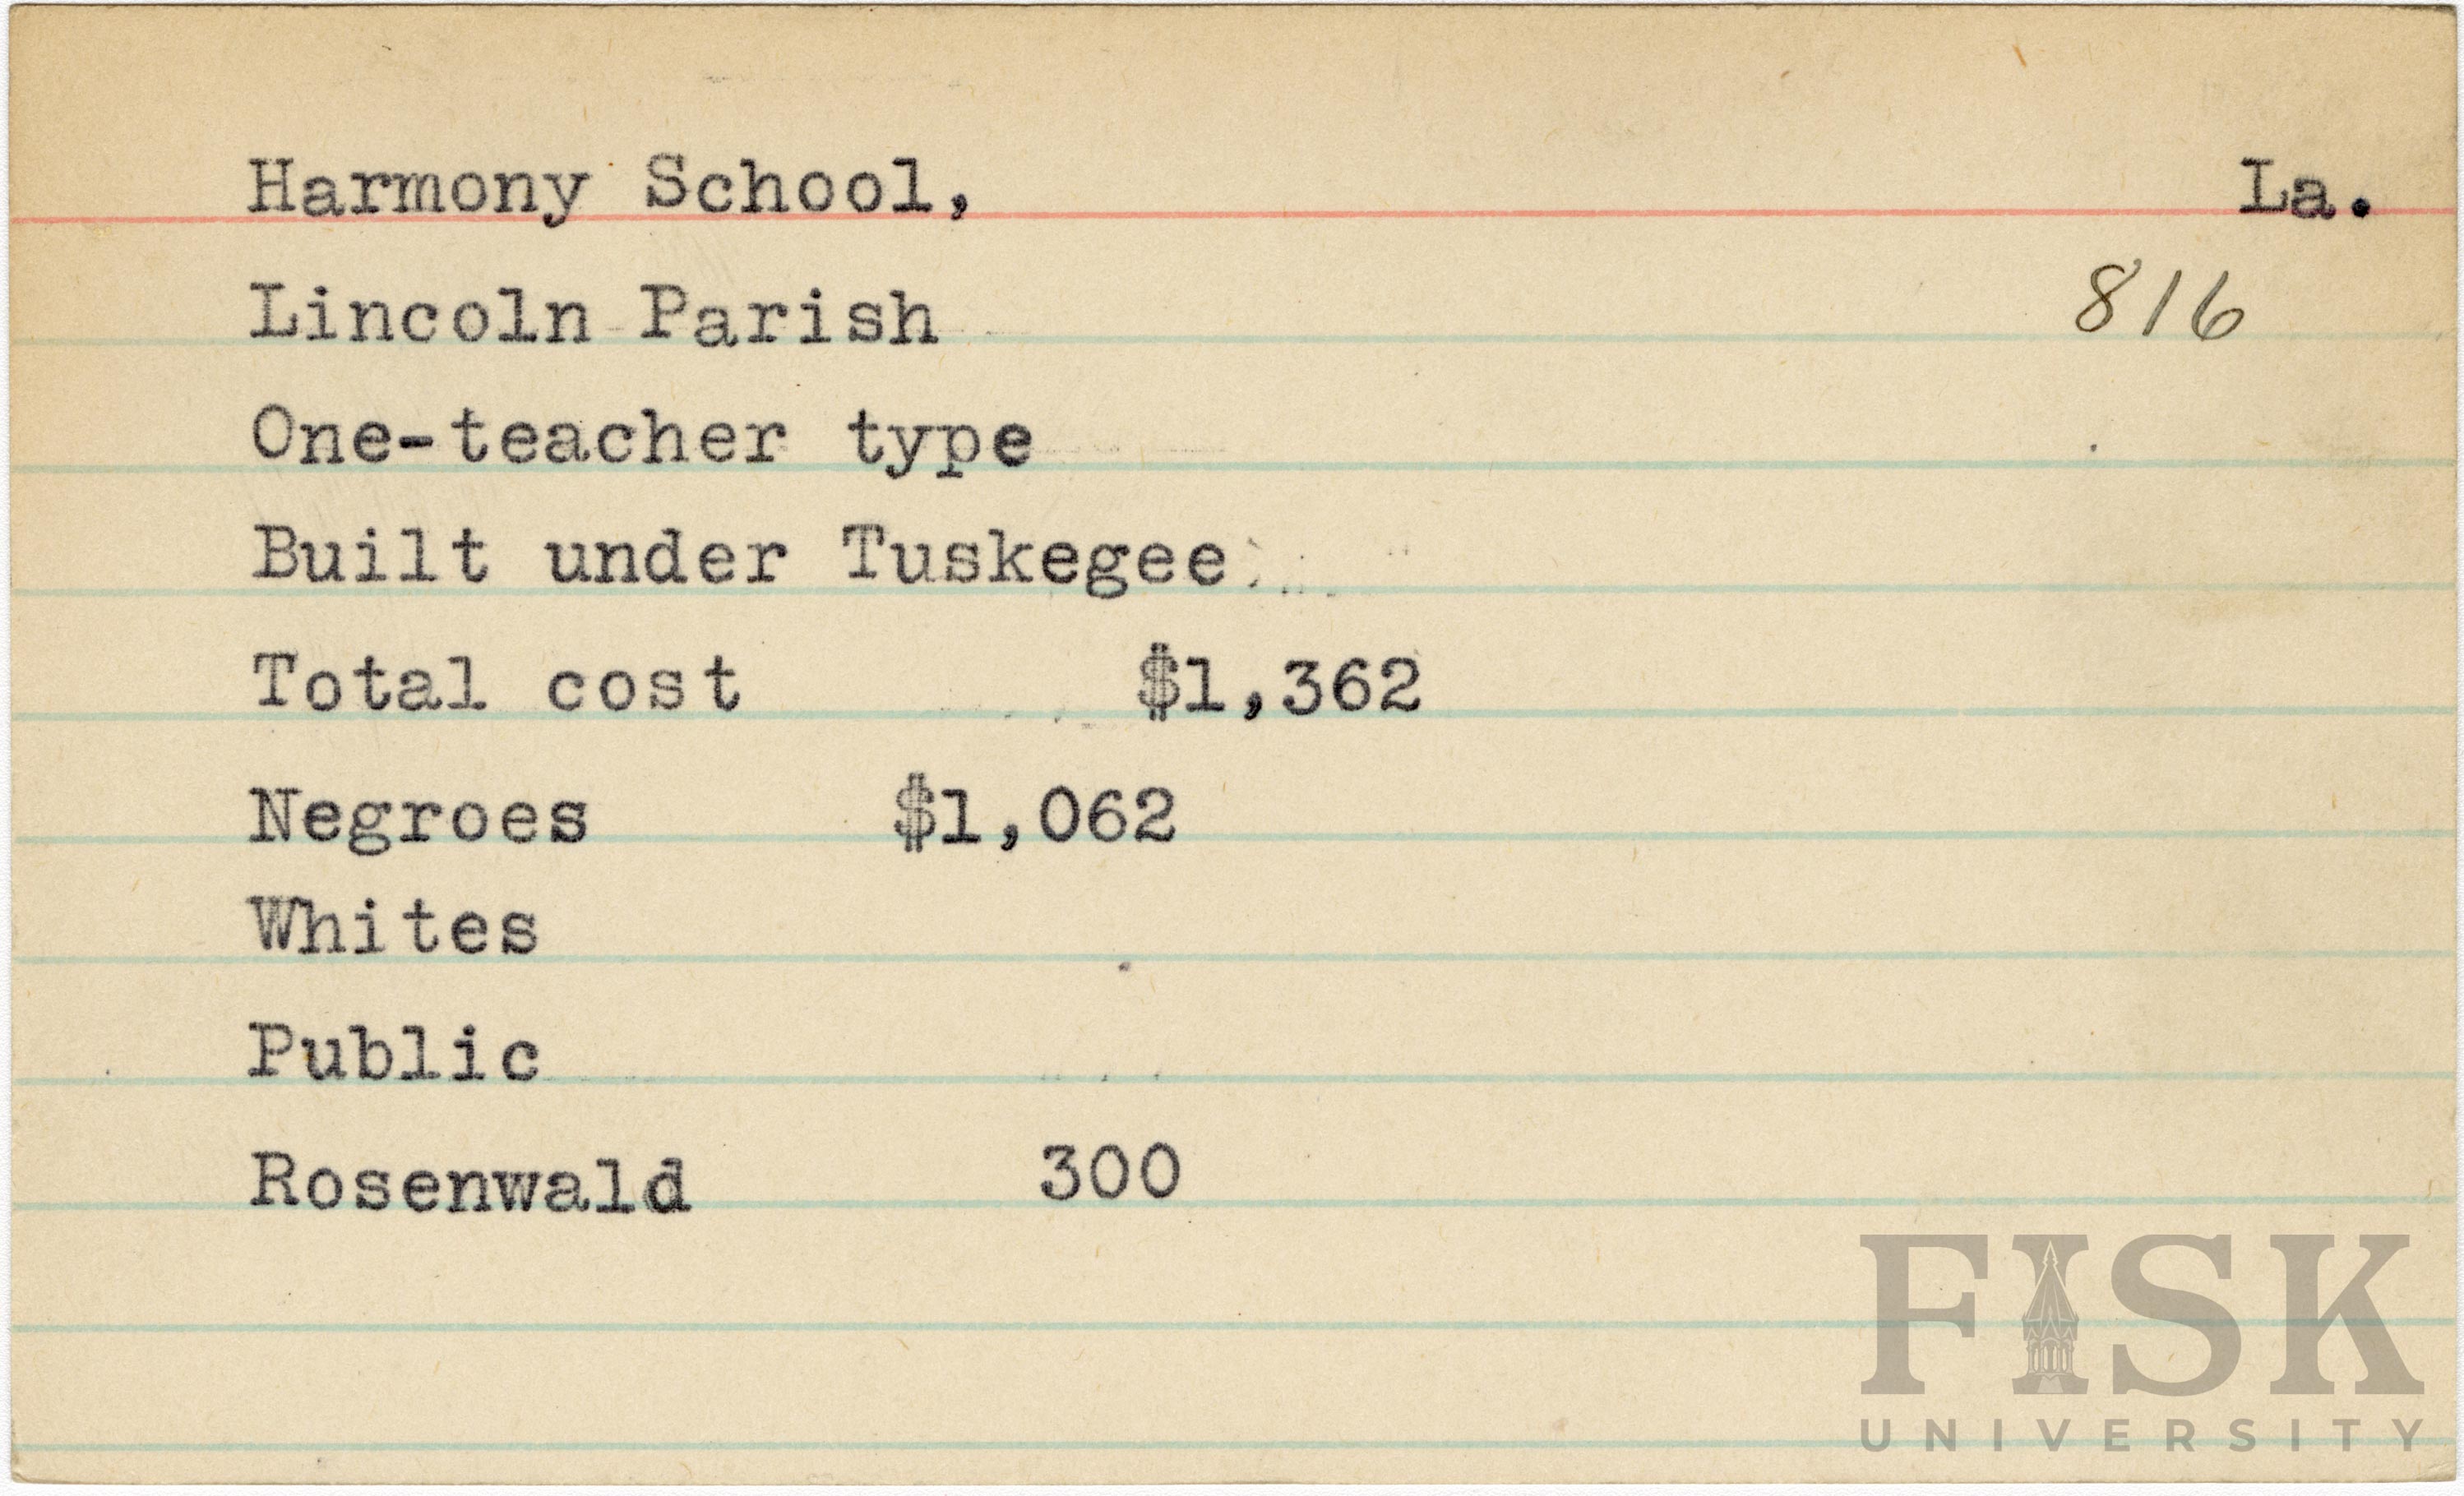 Harmony School, La.
Lincoln Parish 816
One-teacher type
Built under Tuskegee
Total cost $1,362
Negroes $1,062
Whites
Public
Rosenwald 300
FISK
UNIVERSITY